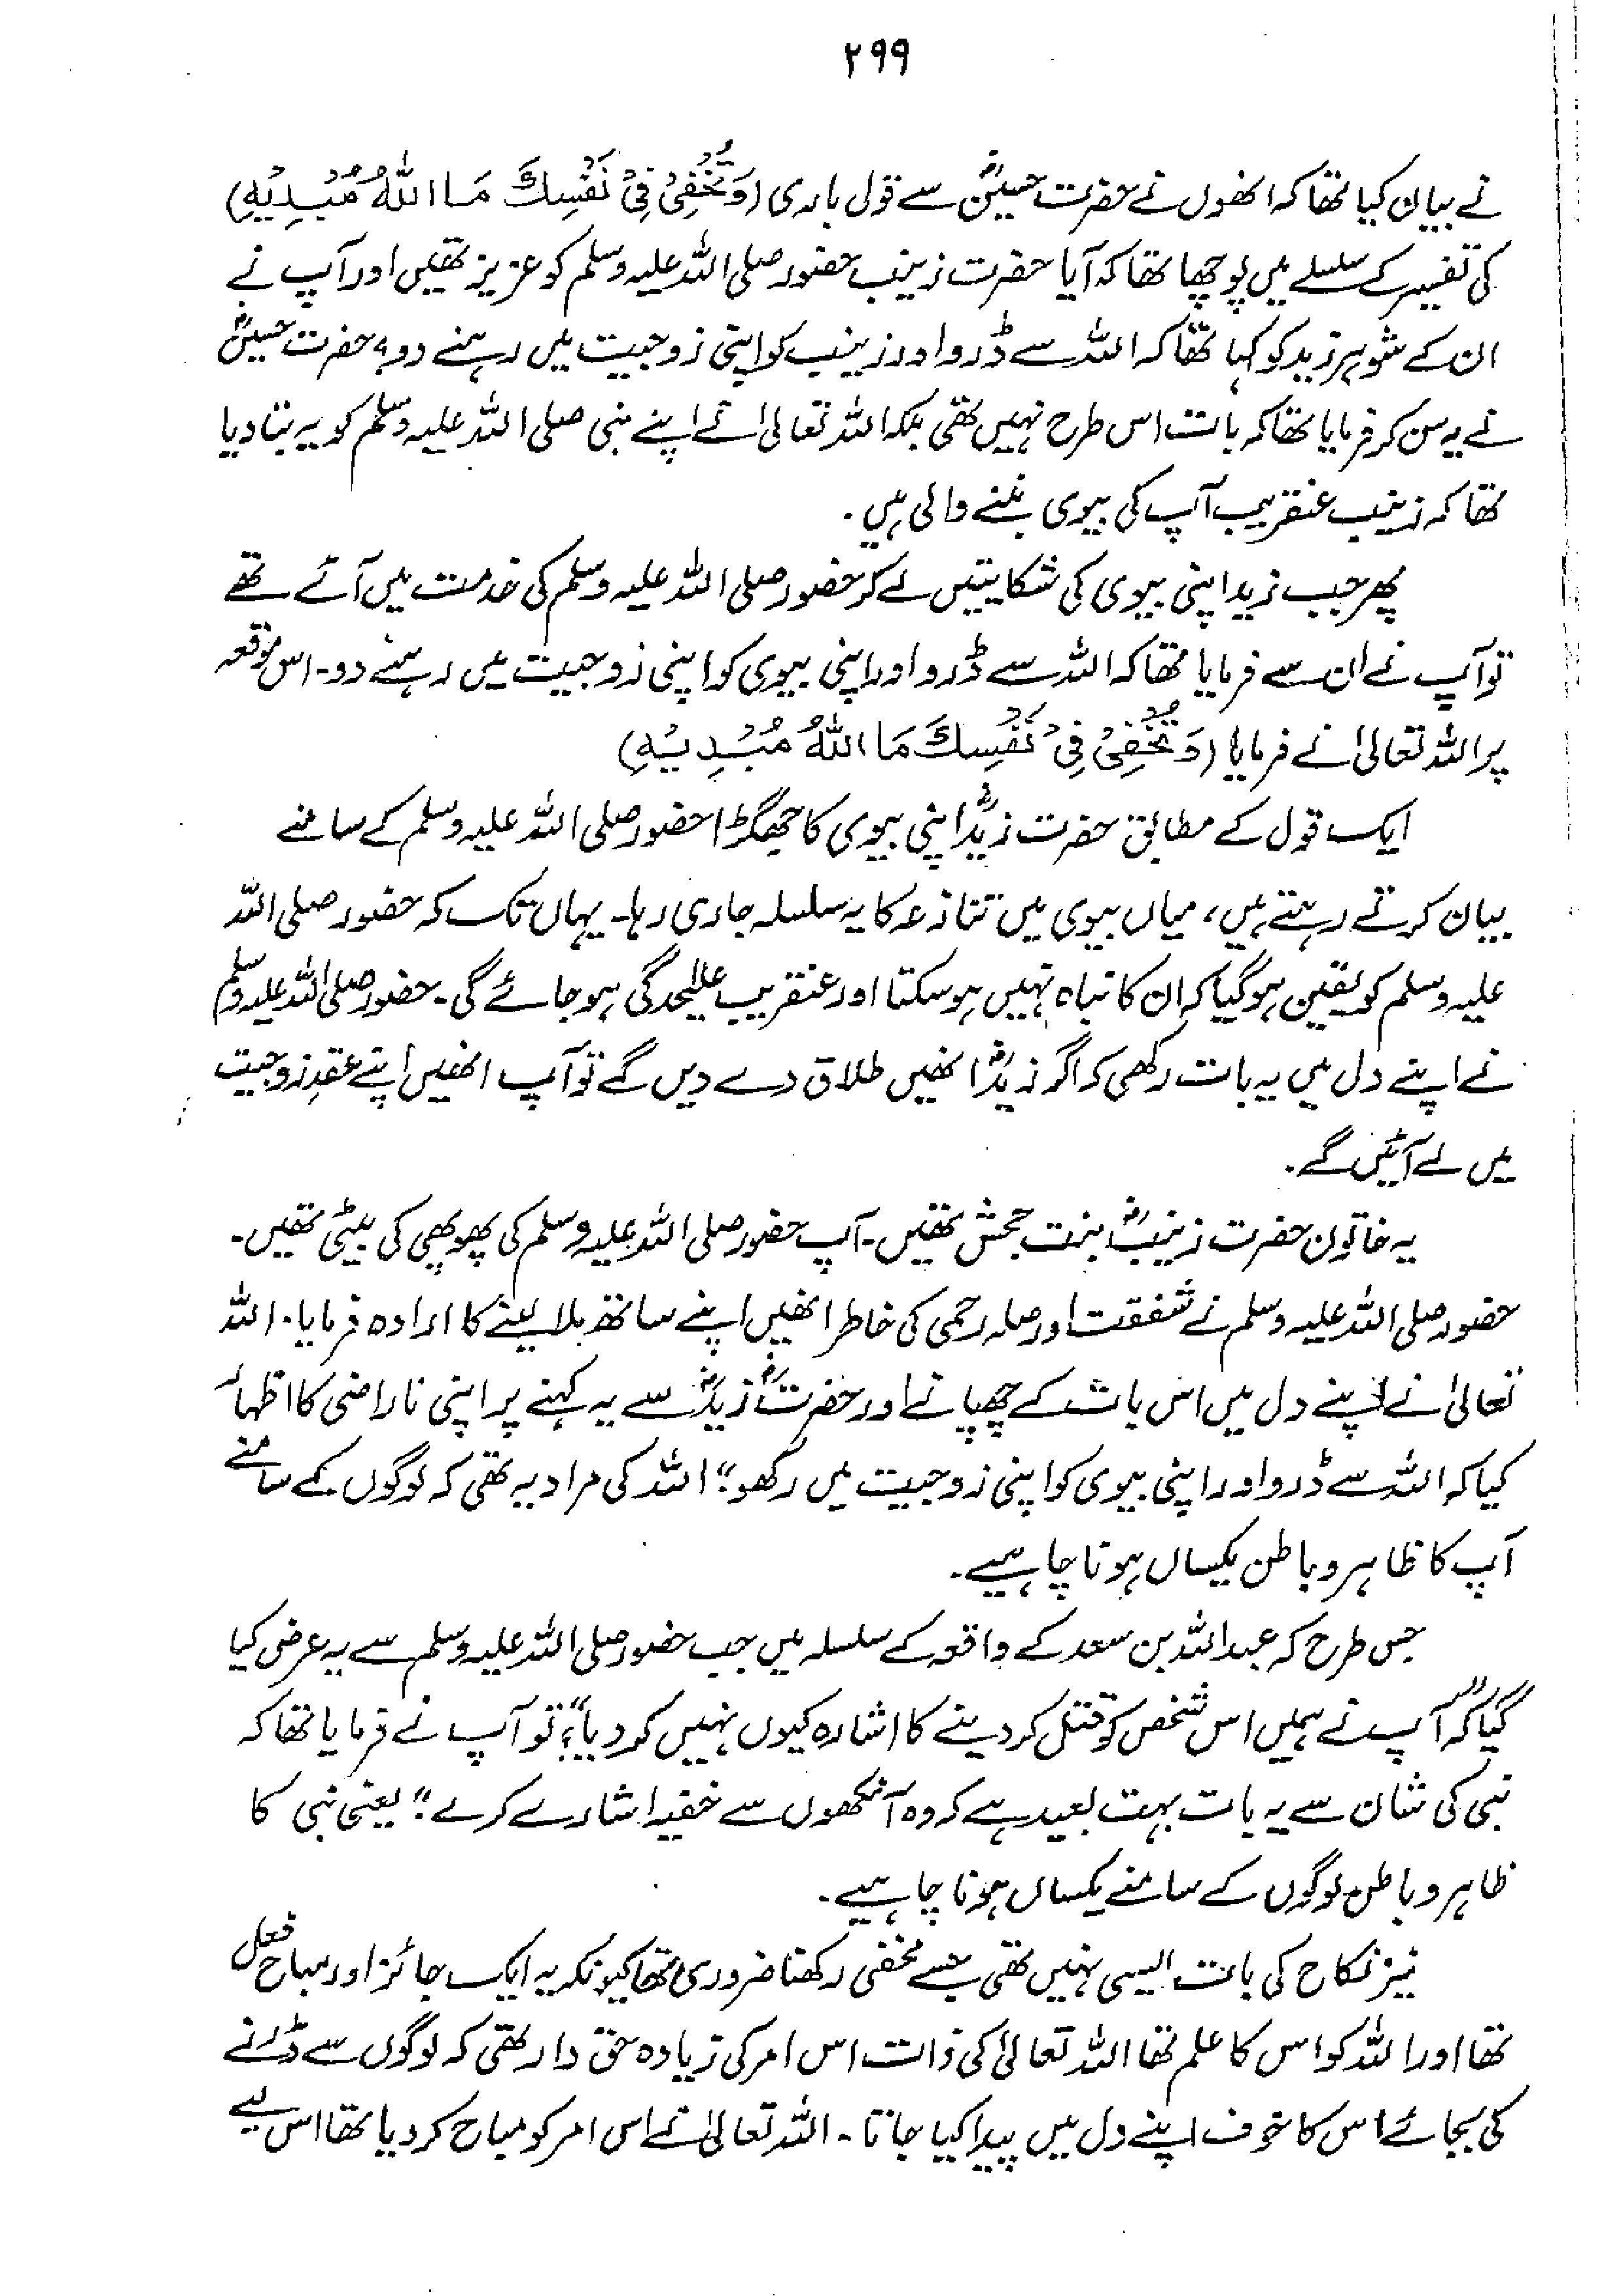 ۲۹۹
نے بیان کیا تھا کہ انھوں نے حضرت حسینؓ سے قول باری (وَتُخْفِیْ فِیْ نَفْسِكَ مَا اللّٰهُ مُبْدِیْهِ)
کی تفسیر کے سلسلے میں پوچھا تھا کہ آیا حضرت زینب حضور صلی اللہ علیہ وسلم کو عزیز تھیں اور آپ نے
ان کے شوہر زید کو کہا تھا کہ اللہ سے ڈرو اور زینب کو اپنی زوجیت میں رہنے دو، حضرت حسینؓ
نے یہ سن کر فرمایا تھا کہ بات اس طرح نہیں تھی بلکہ اللہ تعالیٰ نے اپنے نبی صلی اللہ علیہ وسلم کو یہ بتا دیا
تھا کہ زینب عنقریب آپ کی بیوی بننے والی ہیں۔
پھر جب زید اپنی بیوی کی شکایتیں لے کر حضور صلی اللہ علیہ وسلم کی خدمت میں آئے تھے
تو آپ نے ان سے فرمایا تھا کہ اللہ سے ڈرو اور اپنی بیوی کو اپنی زوجیت میں رہنے دو۔ اس موقعہ
پر اللہ تعالیٰ نے فرمایا (وَتُخْفِیْ فِیْ نَفْسِكَ مَا اللّٰهُ مُبْدِیْهِ)
ایک قول کے مطابق حضرت زیدؓ اپنی بیوی کا جھگڑا حضور صلی اللہ علیہ وسلم کے سامنے
بیان کرتے رہتے ہیں، میاں بیوی میں تنازعہ کا یہ سلسلہ جاری رہا۔ یہاں تک کہ حضور صلی اللہ
علیہ وسلم کو یقین ہو گیا کہ ان کا نباہ نہیں ہو سکتا اور عنقریب علیٰحدگی ہو جائے گی۔ حضور صلی اللہ علیہ وسلم
نے اپنے دل میں یہ بات رکھی کہ اگر زیدؓ انھیں طلاق دے دیں گے تو آپ انھیں اپنے عقدِ زوجیت
میں لے آئیں گے۔
یہ خاتون حضرت زینبؓ بنت جحش تھیں۔ آپ حضور صلی اللہ علیہ وسلم کی پھوپھی کی بیٹی تھیں۔
حضور صلی اللہ علیہ وسلم نے شفقت اور صلہ رحمی کی خاطر انھیں اپنے ساتھ ملا لینے کا ارادہ فرمایا۔ اللہ
تعالیٰ نے اپنے دل میں اس بات کے چھپانے اور حضرتؓ زیدؓ سے یہ کہنے پر اپنی ناراضی کا اظہار
کیا کہ اللہ سے ڈرو اور اپنی بیوی کو اپنی زوجیت میں رکھو" اللہ کی مراد یہ تھی کہ لوگوں کے سامنے
آپ کا ظاہر و باطن یکساں ہونا چاہیے۔
جس طرح کہ عبداللہ بن سعد کے واقعہ کے سلسلہ میں جب حضور صلی اللہ علیہ وسلم سے یہ عرض کیا
گیا کہ" آپ نے ہمیں اس شخص کو قتل کر دینے کا اشارہ کیوں نہیں کر دیا"؟ تو آپ نے فرمایا تھا کہ
نبی کی شان سے یہ بات بہت بعید ہے کہ وہ آنکھوں سے خفیہ اشارے کرے" یعنی نبی کا
ظاہر و باطن لوگوں کے سامنے یکساں ہونا چاہیے۔
نیز نکاح کی بات ایسی نہیں تھی جسے مخفی رکھنا ضروری تھا کیونکہ یہ ایک جائز اور مباح فعل
تھا اور اللہ کو اس کا علم تھا اللہ تعالیٰ کی ذات اس امر کی زیادہ حق دار تھی کہ لوگوں سے ڈرنے
کی بجائے اس کا خوف اپنے دل میں پیدا کیا جاتا۔ اللہ تعالیٰ نے اس امر کو مباح کر دیا تھا اس لیے